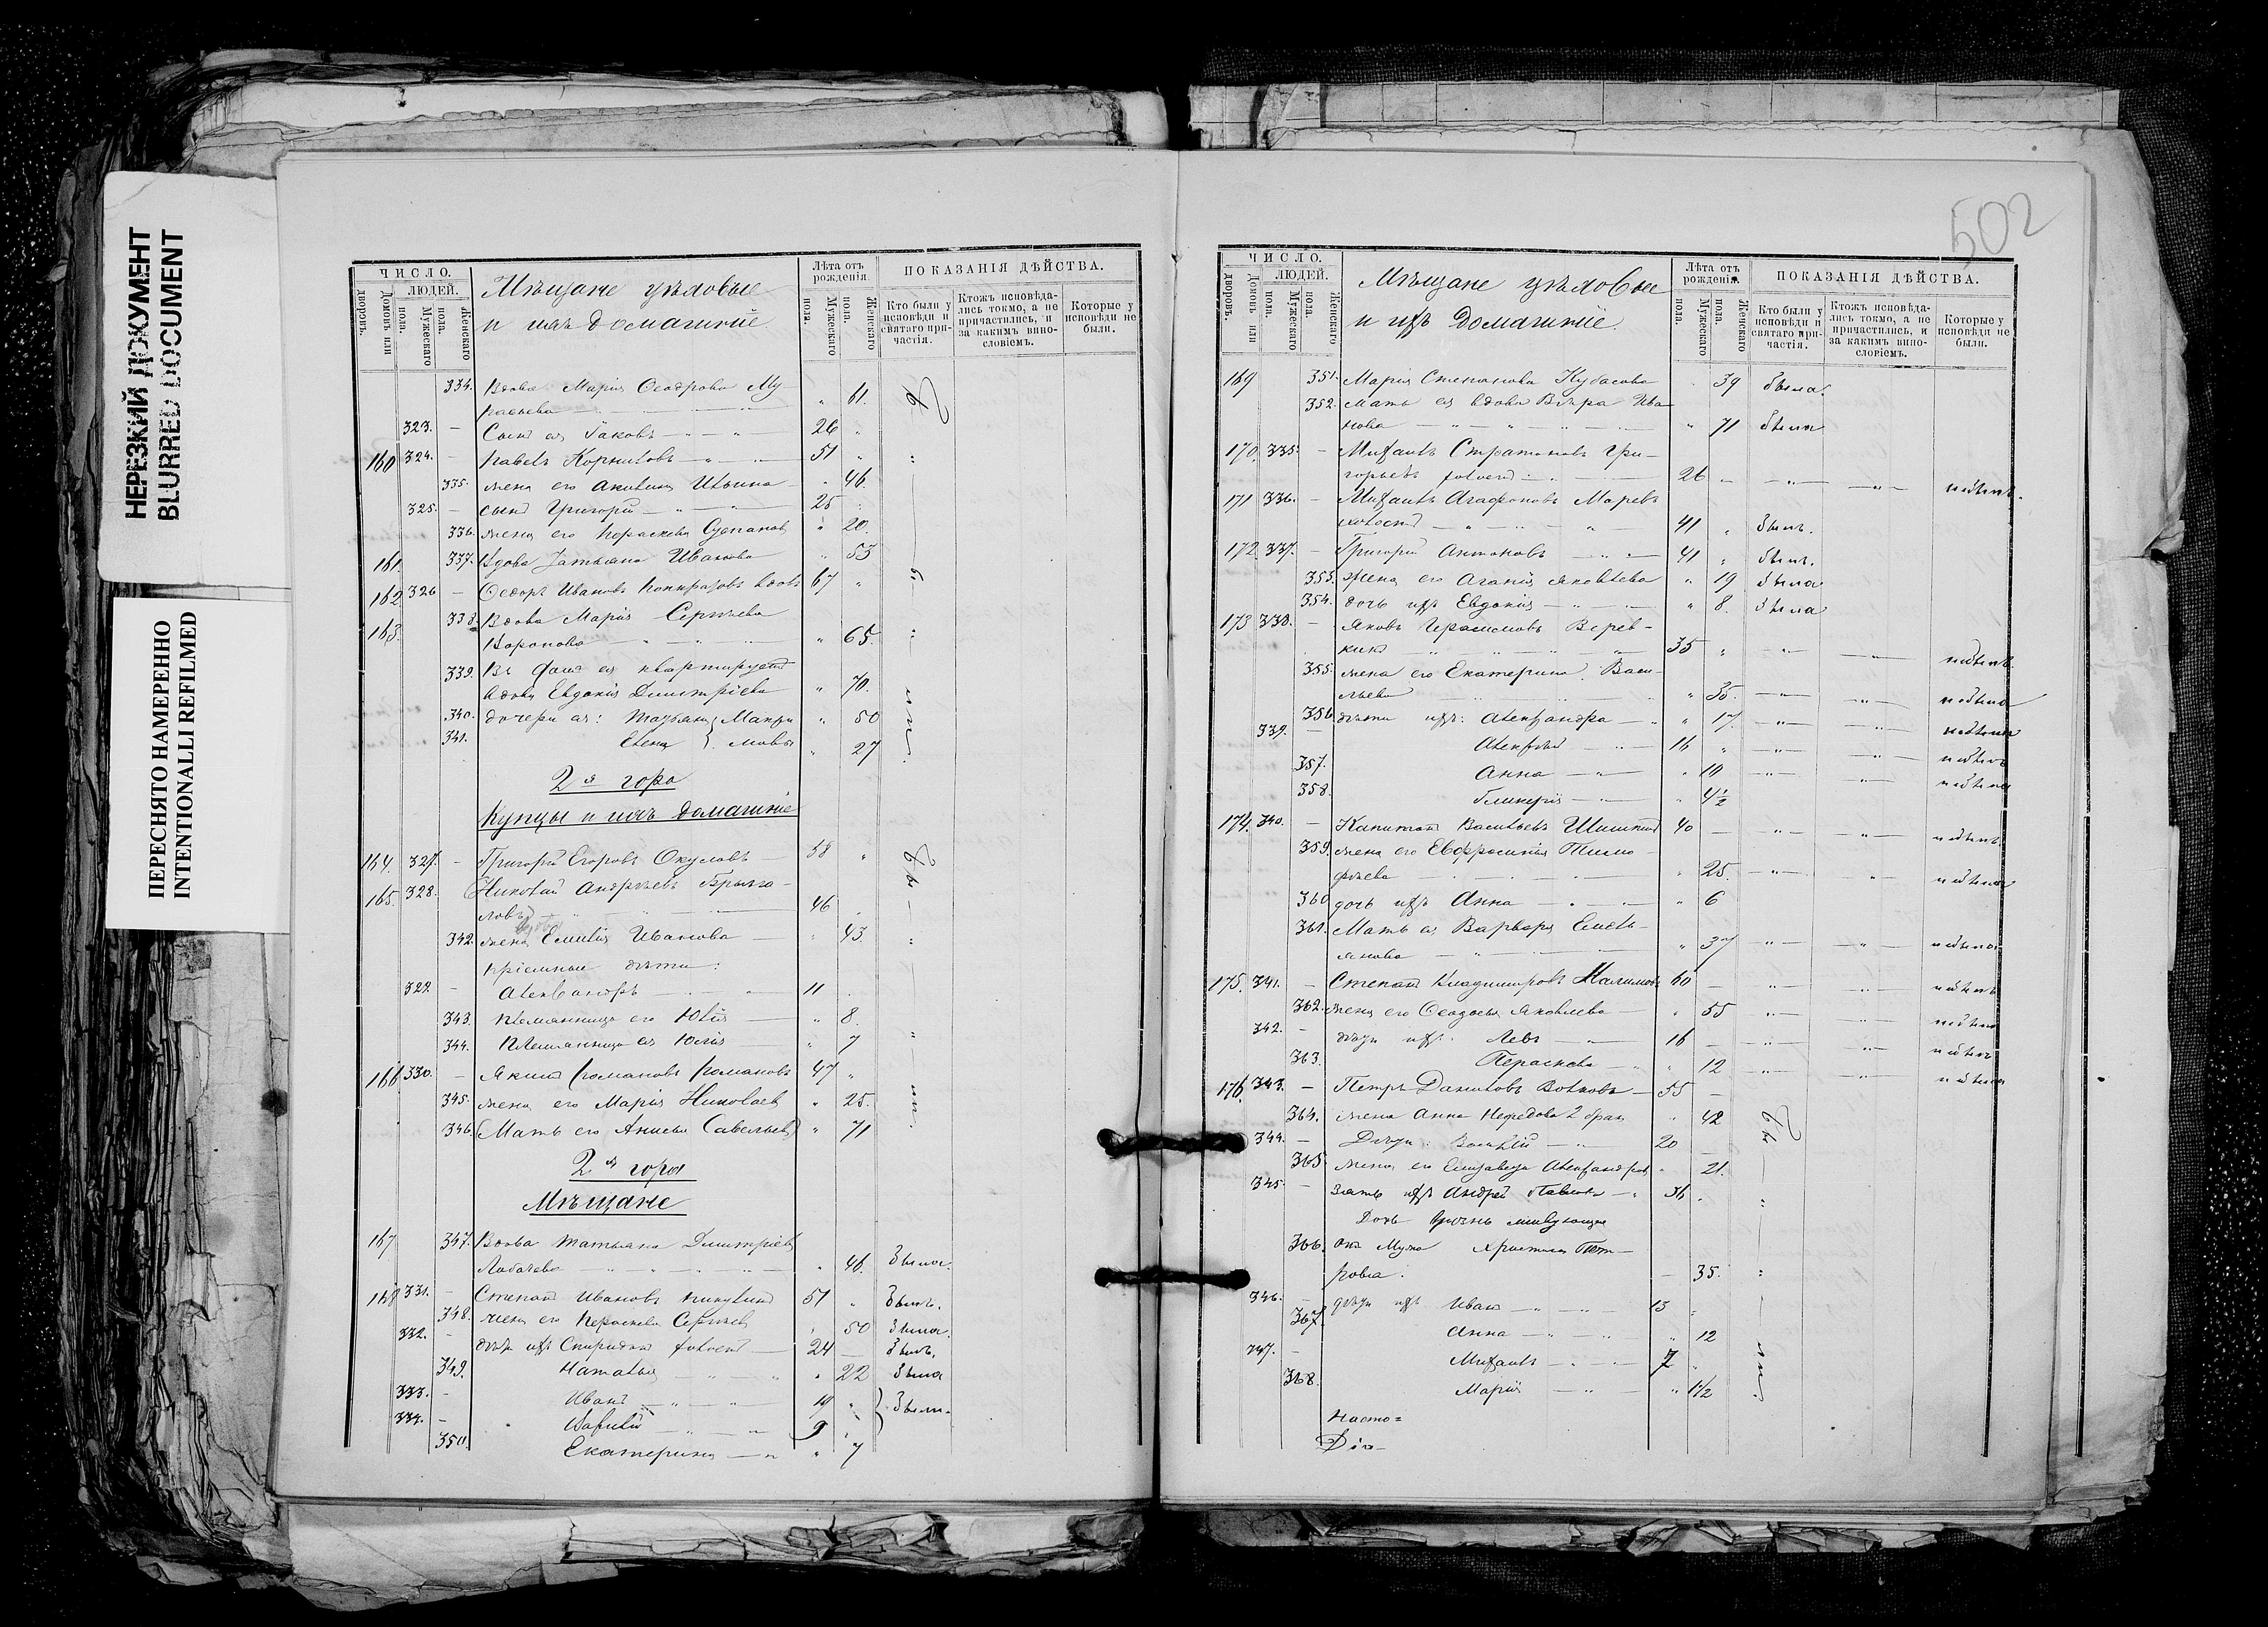 НЕРЕЗКИЙ ДОКУМЕНТ
BLURRED DOCUMENT
ПЕРЕСНЯТО НАМЕРЕННО
INTENTIONALLI REFILMED
ЧИСЛО.
ЛЮДЕЙ.
Домовъ или дворовъ.
Мужескаго пола.
Женскаго пола.
Мѣщане цѣховые
и ихъ домашніе.
Лѣта отъ рожденія.
Мужескаго пола.
Женскаго пола.
ПОКАЗАНІЯ ДѢЙСТВА.
Кто были у исповѣди и святаго причастія.
Ктожъ исповѣдались токмо, а не причастились, и за какимъ винословіемъ.
Которые у исповѣди не были.
334. Вдова Марія Ѳеодрова Му-
равьева 61.
323. Сынъ ея Іаковъ 26
160 324. Павелъ Корниловъ 51
335. жена его Акилина Ильина 46.
325. сынъ Григорій 25
336. жена его Пораскева Сдепанов 20.
161 337. Вдова Татьяна Иванова 53
162 326 Ѳеодоръ Ивановъ вдовъ 67
163. 338. Вдова Марія Сергѣева
Воронова 65.
339. Въ домѣ ея квартируетъ
вдова Евдокія Димитріева 70.
340. дочери ея: Татьяна Макси 50
341. Елена мовы 27
2я гора
Купцы и ихъ домашніе
164. 327. Григорій Егоровъ Окуловъ 58
165. 328. Николай Андрѣевъ Брызга-
ловъ 46
342. жена Емилія Иванова 43
пріемныи дѣти:
322 Александръ 11
343. племянница его Юлія 8.
344. племянница ея Юлія 7
166 330. Якимъ Романовъ Романовъ 47
345. жена его Марія Николаев 25.
346. Мать его Анисья Савельев 71
2я гора
Мѣщане
167 347. Вдова Татьяна Димитріев
Лобачева 46. была.
168 331. Степанъ Ивановъ Никулинъ 51 былъ.
348. жена его Пераскева Сергѣев 50 была.
332. дѣти ихъ Спиридонъ холостъ 24 былъ.
349. Наталья 22 была
333. Иванъ 19 были.
334. Василій 9
350. Екатерина 7
502
ЧИСЛО.
ЛЮДЕЙ.
Домовъ или дворовъ.
Мужескаго пола.
Женскаго пола.
Мѣщане цѣховые
и ихъ домашніе.
Лѣта отъ рожденія.
Мужескаго пола.
Женскаго пола.
ПОКАЗАНІЯ ДѢЙСТВА.
Кто были у исповѣди и святаго причастія.
Ктожъ исповѣдались токмо, а не причастились, и за какимъ винословіемъ.
Которые у исповѣди не были.
169 351. Марія Степанова Кубасова 39 была.
352. мать ея вдова Вѣра Ива-
нова 71 была
170. 335. Михаилъ Стратоновъ Гри-
горьевъ холостъ 26 небылъ.
171 336. Михаилъ Агафоновъ Маревъ
холостъ 41 былъ.
172 337. Григорій Антоновъ 41 былъ.
353. жена его Агапія Яковлева 19 была
354. дочь ихъ Евдокія 8. была
173 338. Яковъ Герасимовъ Верев-
кинъ 35 небылъ.
355. жена его Екатерина Васи-
льева 35. небыла
356. дѣти ихъ: Александра 17. небыла
339. Алексѣй 16 небылъ
357. Анна 10 небыла
358. Гликерія 4½
174. 340. Капитонъ Васильевъ Шишкинъ 40 небылъ.
359. жена его Евфросинія Тимо-
фѣева 25. небыла
360 дочь ихъ Анна 6
361. Мать ея Варвара Емель-
янова 37 небыла.
175. 341. Степанъ Владимировъ Калимовъ 60 небылъ
362. жена его Ѳеодосья Яковлева 55 небыла
342. дѣти ихъ: Левъ 16 небылъ
363. Пераскева 12 небыла
176. 343. Петръ Даниловъ Волковъ 55
364. жена Анна Нефедова 2 брак 42
344. Дѣти: Василій 20
365. жена его Елизавета Александров 21.
345. зять ихъ Андрей Павловъ 36
Дочь
366. отъ Мужа Христина Пет-
рова. 35.
346. дѣти ихъ Иванъ 15
367. Анна 12
347. Михаилъ 7
368. Марія 1½
Насто=
Діа-